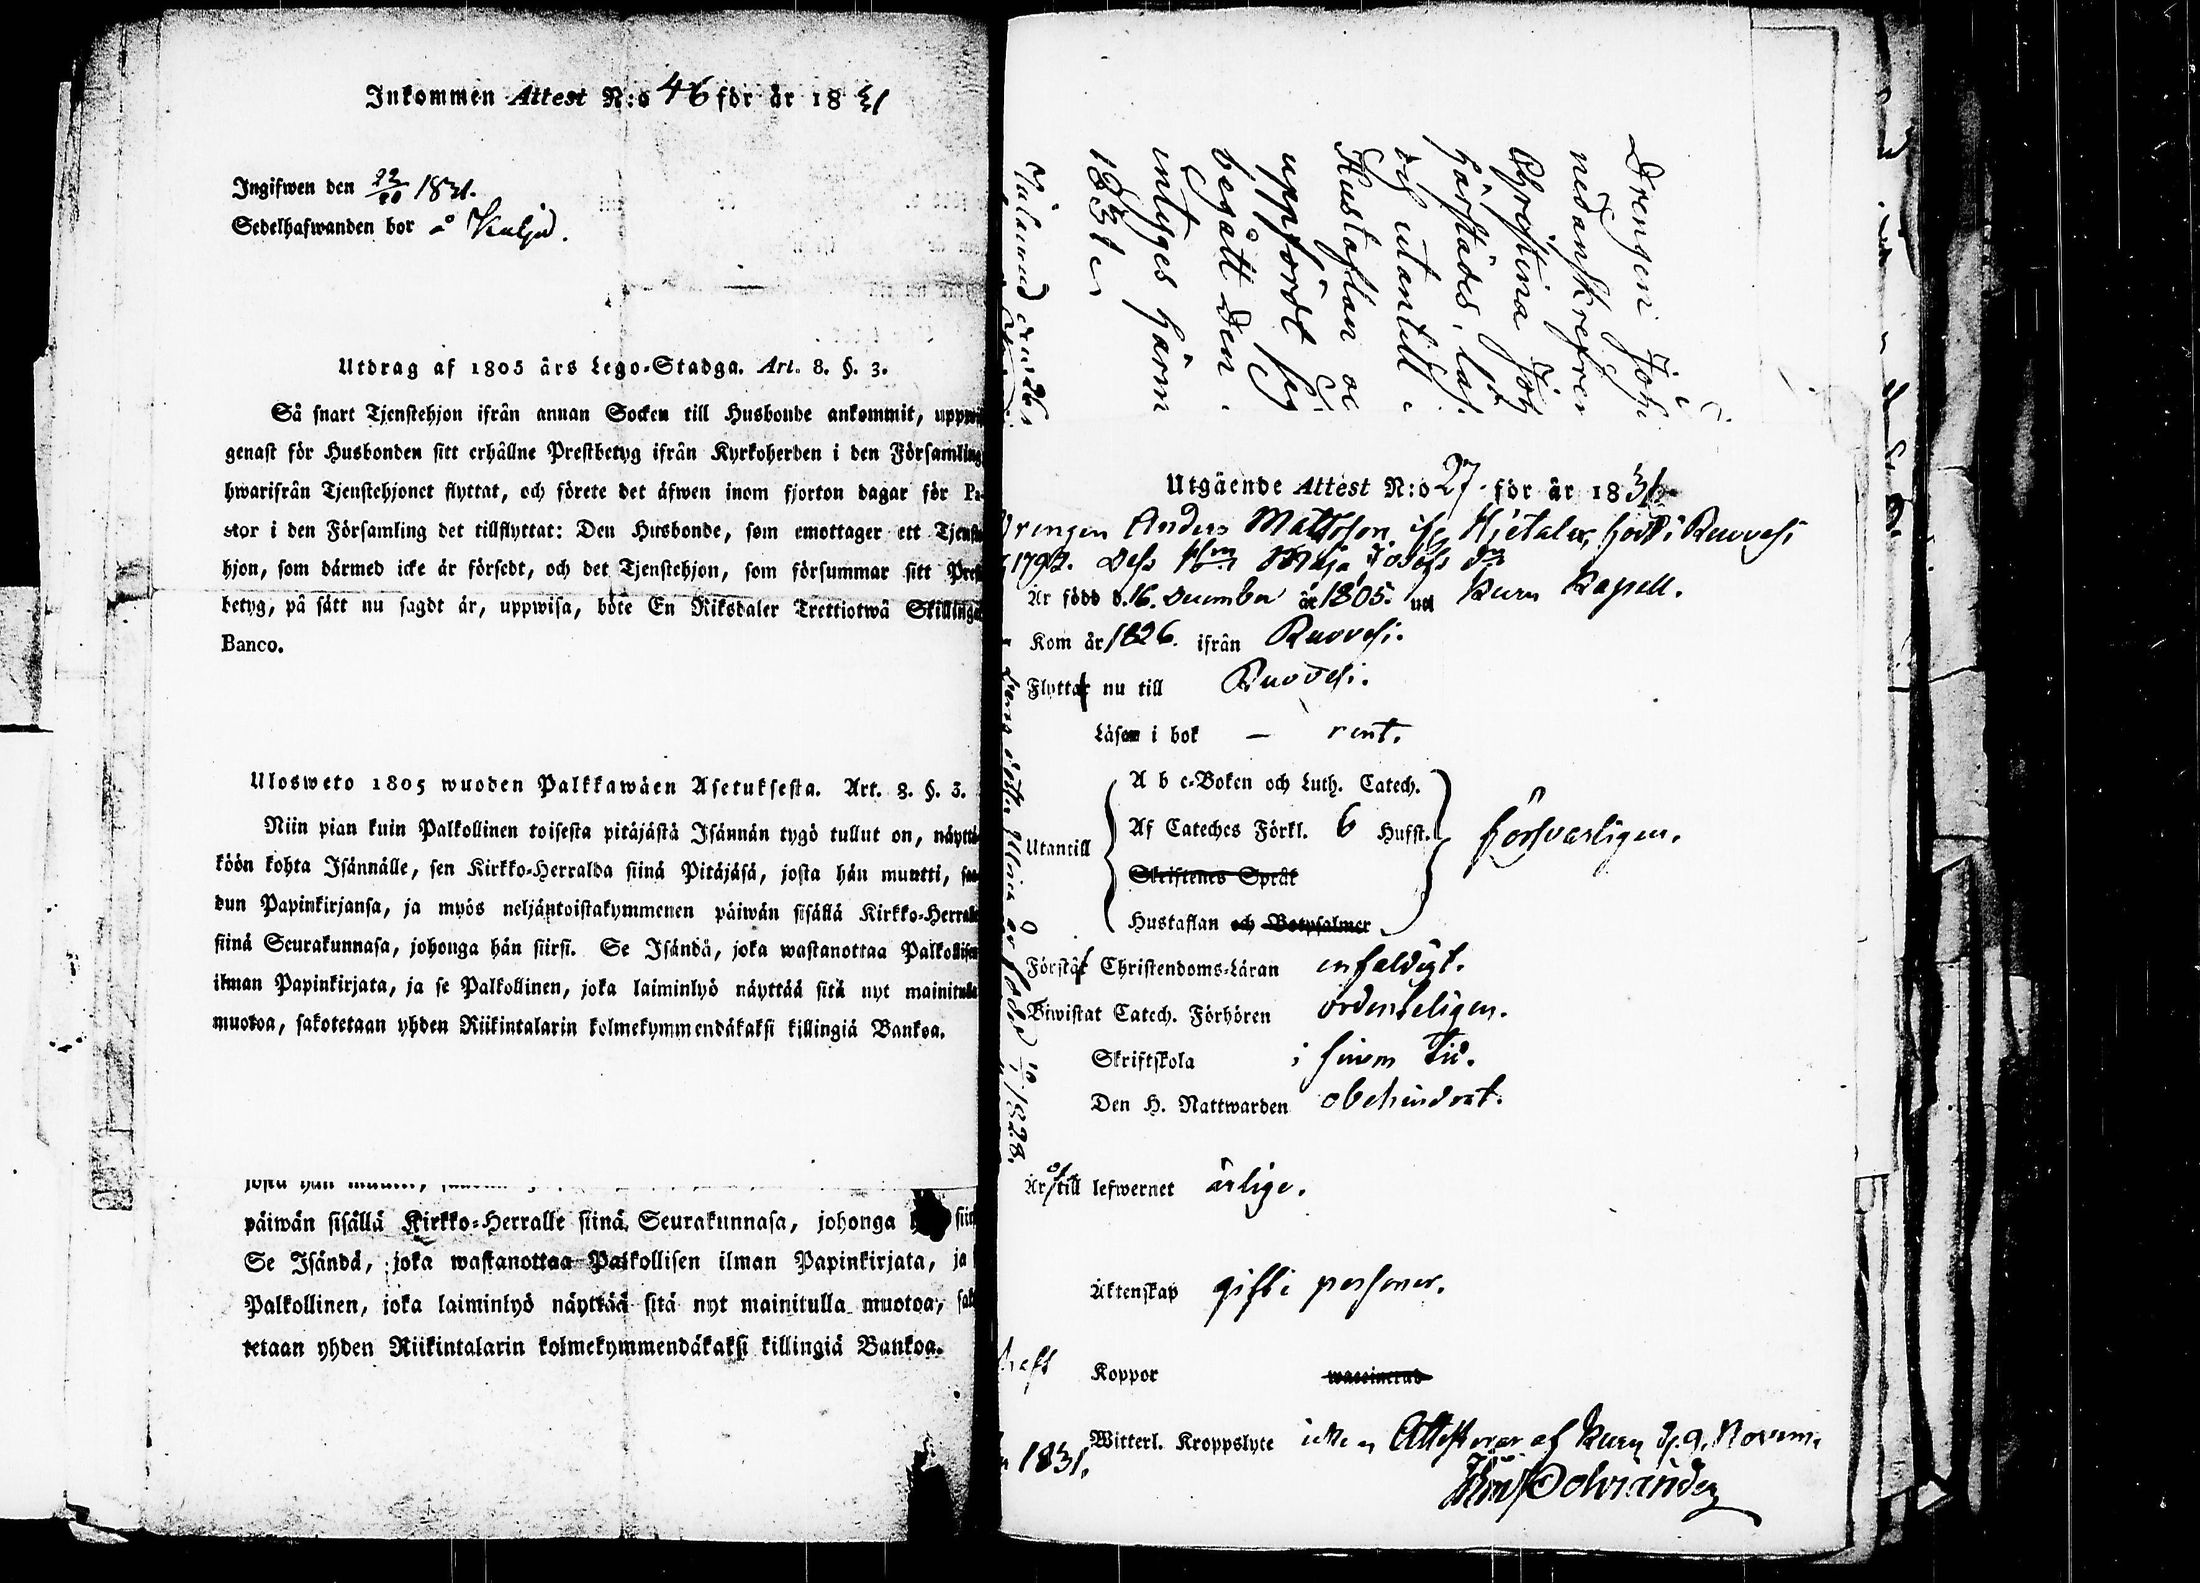 Inkommen Attest N:o 46 för år 1831
Ingifwen den 22/20 1831.
Sedelhafwanden bor å
Utdrag af 1805 års Lego-Stadga. Art. 8. §. 3.
Så snart Tjenstehjon ifrån annan Socken till Husbonde ankommit,
genast för Husbonden sitt erhållne Prestbetyg ifrån Kyrkoherden i den Församling
hwarifrån Tjenstehjonet flyttat, och förete det äfwen inom fjorton dagar för Pa-
stor i den Församling det tillflyttat: Den Husbonde, som emottager ett Tjenste
hjon, som därmed icke är försedt, och det Tjenstehjon, som försummar sitt Prest
betyg, på sätt nu sagdt är, uppwisa, böte En Riksdaler Trettiotwå Skillingar
Banco.
Ulosweto 1805 wuoden Palkkawäen Asetuksesta. Art. 8. §. 3.
Niin pian kuin Palkollinen toisesta pitäjästä Isännän tygö tullut on, näyttä
köön kohta Isännälle, sen Kirkko-Herralda siinä Pitäjäsä, josta hän muutti, saa
dun Papinkirjansa, ja myös neljäntoistakymmenen päiwän sisällä Kirkko-Herralle
siinä Seurakunnasa, johonga hän siirsi. Se Isändä, joka wastanottaa Palkollisen
ilman Papinkirjata, ja se Palkollinen, joka laiminlyö näyttää sitä nyt mainitulla
muotoa, sakotetaan yhden Riikintalarin kolmekymmendäkaksi killingiä Bankoa.
josta hän muutti,
päiwän sisällä Kirkko-Herralle siinä Seurakunnasa, johonga
Se Isändä, joka wastanottaa Palkollisen ilman Papinkirjata, ja
Palkollinen, joka laiminlyö näyttää sitä nyt mainitulla muotoa, sako
tetaan yhden Riikintalarin kolmekymmendäkaksi killingiä Bankoa.
Drengen Joh
nedanskrefne
Christina Joh
härstädes, läs
och utantill
Hustaflan oc
uppfördt sig
begått den
intyges härm
1831
Utgående Attest N:o 27 för år 1831
Drengen Anders Mattsson född i Ruovesi
1792. Dess Maja Josefs dr
Är född d. 16. December år 1805. uti Kuru Kapell.
Kom år 1826. ifrån Ruovesi.
Flyttar nu till Ruovesi.
Läser i bok — rent.
Utantill
A b c-Boken och Luth. Catech.
Af Cateches Förkl. 6 Hufst.
Skriftenes Språk
Hustaflan och Botpsalmer
försvarligen.
Förstår Christendoms-Läran enfaldigt.
Biwistat Catech. Förhören ordenteligen.
Skriftskola i sinom tid.
Den H. Nattwarden obehindrat.
Är till lefwernet ärlige.
Äktenskap gifte personer.
Koppor waccinerad
Witterl. Kroppslyte icke Attesterar af Kuru d. 9. Novem
1831.
1828.